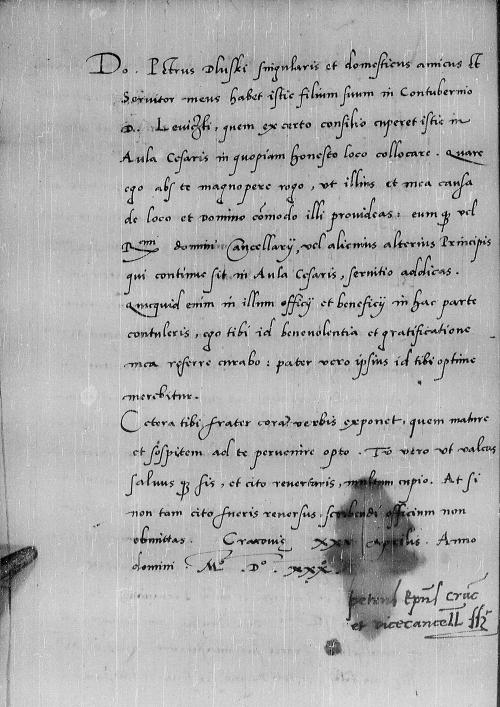 Do. Petrus Dluski singularis et domesticus amicus et
servitor meus habet istic filium suum in Contubernio
D. Lewiczki, quem ex certo consilio cuperet istic in
Aula Cesaris in quopiam honesto loco collocare. Quare
ego abs te magnopere rogo, ut illius et mea causa
de loco et Domino cōmodo illi provideas: eumq; vel
R^mi domini Cancellarij, vel alicuius alterius Principis
qui continue sit in Aula Cesaris, servitio addicas.
Quicquid enim in illum officij et beneficij in hac parte
contuleris, ego tibi id benevolentia et gratificatione
mea referre curabo: pater vero ipsius id tibi optime
merebitur.
Cetera tibi frater coram verbis exponet, quem mature
et sospitem ad te pervenire opto. Tu vero ut valeas
salvus q; sis, et cito revertaris, multum cupio. At si
non tam cito fueris reversus, scribendi officium non
obmittas. Cracovię Aprilis. Anno
domini. M^o. D^o. xxx^o.
Petrus Ep̄us Crac̄
et vicecancell